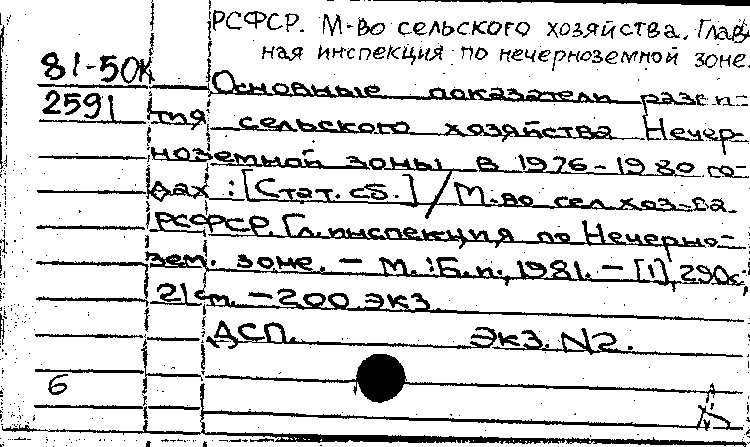 РСФСР. М-во сельского хозяйства. Глав-
ная инспекция по нечерноземной зоне.
81-50К
2591
Основные показатели разви-
тия сельского хозяйства Нечер-
ноземной зоны в 1976-1980 го-
дах : [Стат. сб.] / М-во сел. хоз-ва
РСФСР. Гл. инспекция по Нечерно-
зем. зоне. - М. : Б. и., 1981. - [1], 290с.;
21 см. - 200 экз.
ДСП. Экз. N2.
6